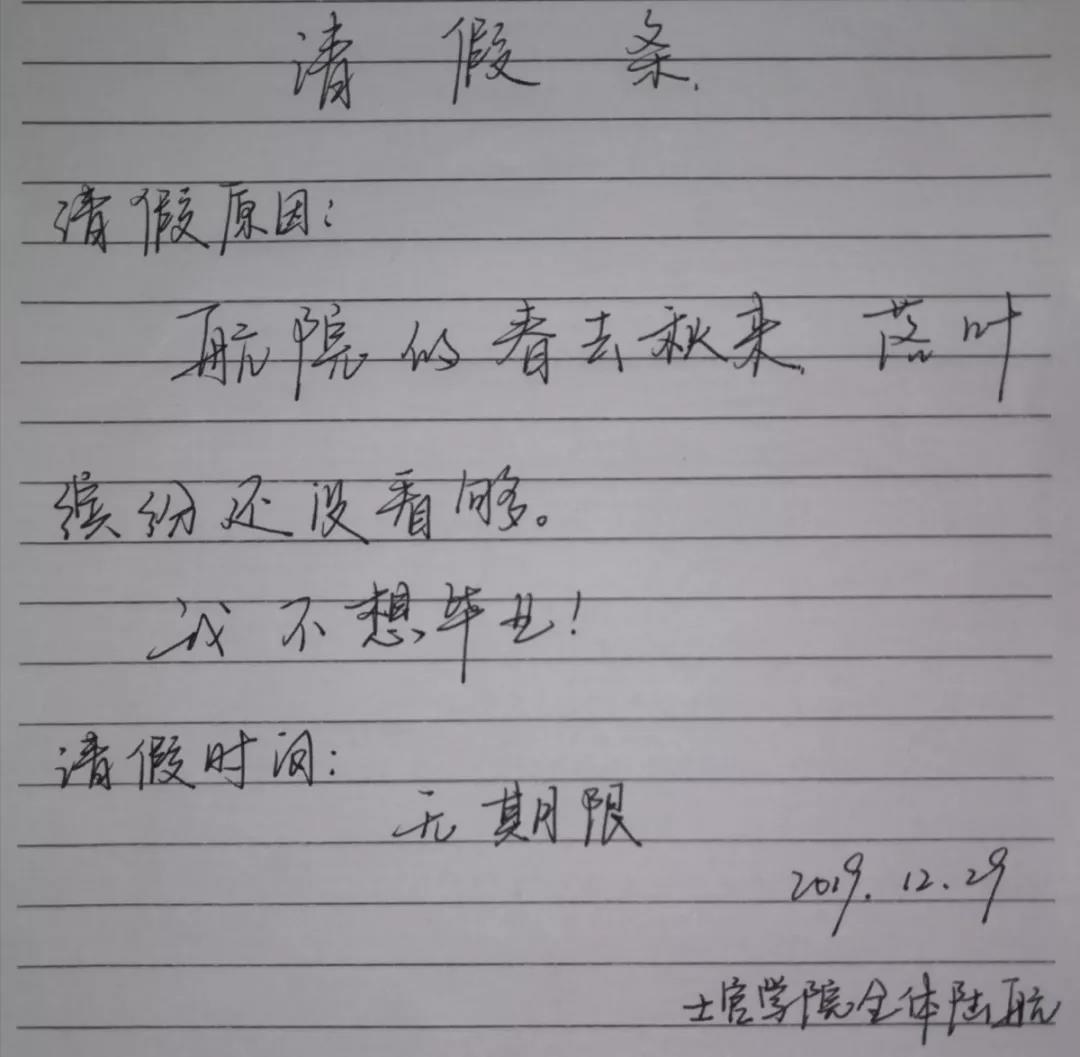 请假条.
请假原因:
航院的春去秋来,落叶
缤纷还没看够。
我不想毕业!
请假时间:
无期限
2019.12.29
士官学院全体陆航